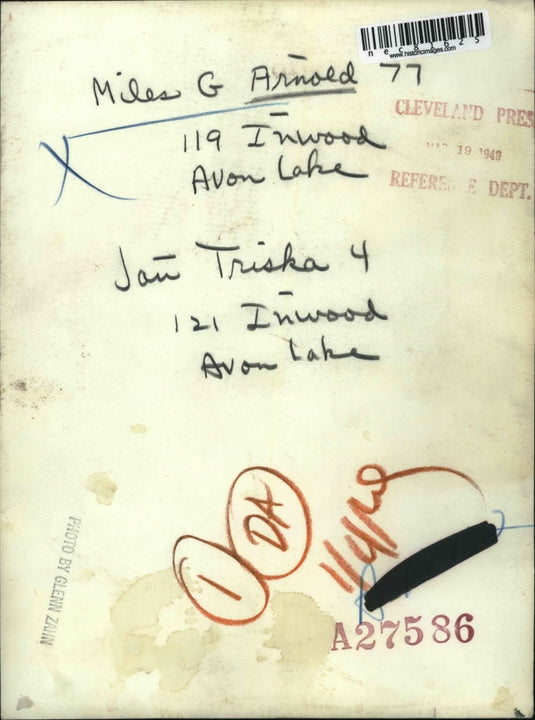 www.historicimages.com
Miles G Arnold 77
119 Inwood
Avon Lake
CLEVELAND PRES
19 1949
REFERENCE DEPT.
Jan Triska 4
121 Inwood
Avon Lake
1
DA
PHOTO BY GLENN ZAHN
A27586